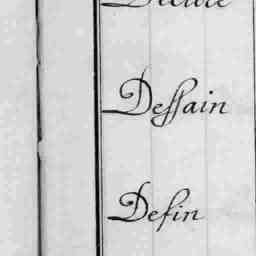 Dessain
Defin